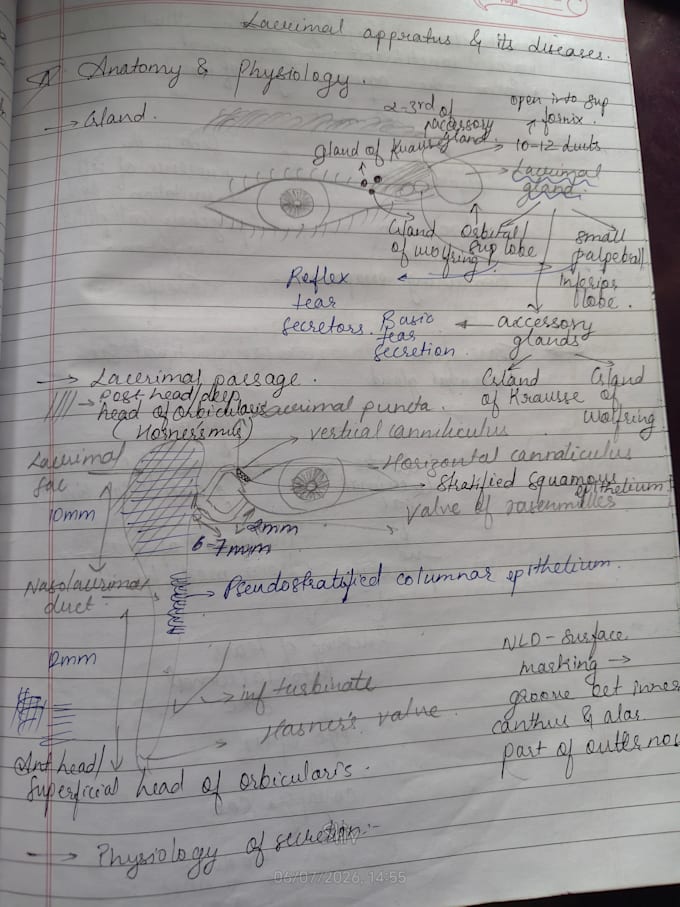 Lacrimal appratus & its diseases.
Anatomy & Physiology.
→ Gland.
2-3rd of accessory gland
open into sup fornix.
10-12 ducts
gland of Krause
Lacrimal gland.
Gland of wolfring
Orbital/ Sup lobe
small palpebral/ Inferior lobe.
Reflex tear secretors.
Basic tear secretion
accessory glands
Gland of Krausse
Gland of Wolfring
→ Lacrimal passage.
→ post head/deep head of orbicularis
(Horner's mus)
Lacrimal puncta.
vertical canniliculus
Horizontal cannaliculus
Stratified Squamous epithelium
valve of rosenmilles
Lacrimal Sac
10mm
2mm
6-7mm
Nasolacrimal duct
→ Pseudostratified columnar epithelium.
NLD - Surface
marking →
groove bet inner
canthus & alar
part of outer nos
→ inf turbinate
Hasner's valve
Ant head/
Superficial head of orbicularis.
→ Physiology of secretion:-
06/07/2026, 14:55